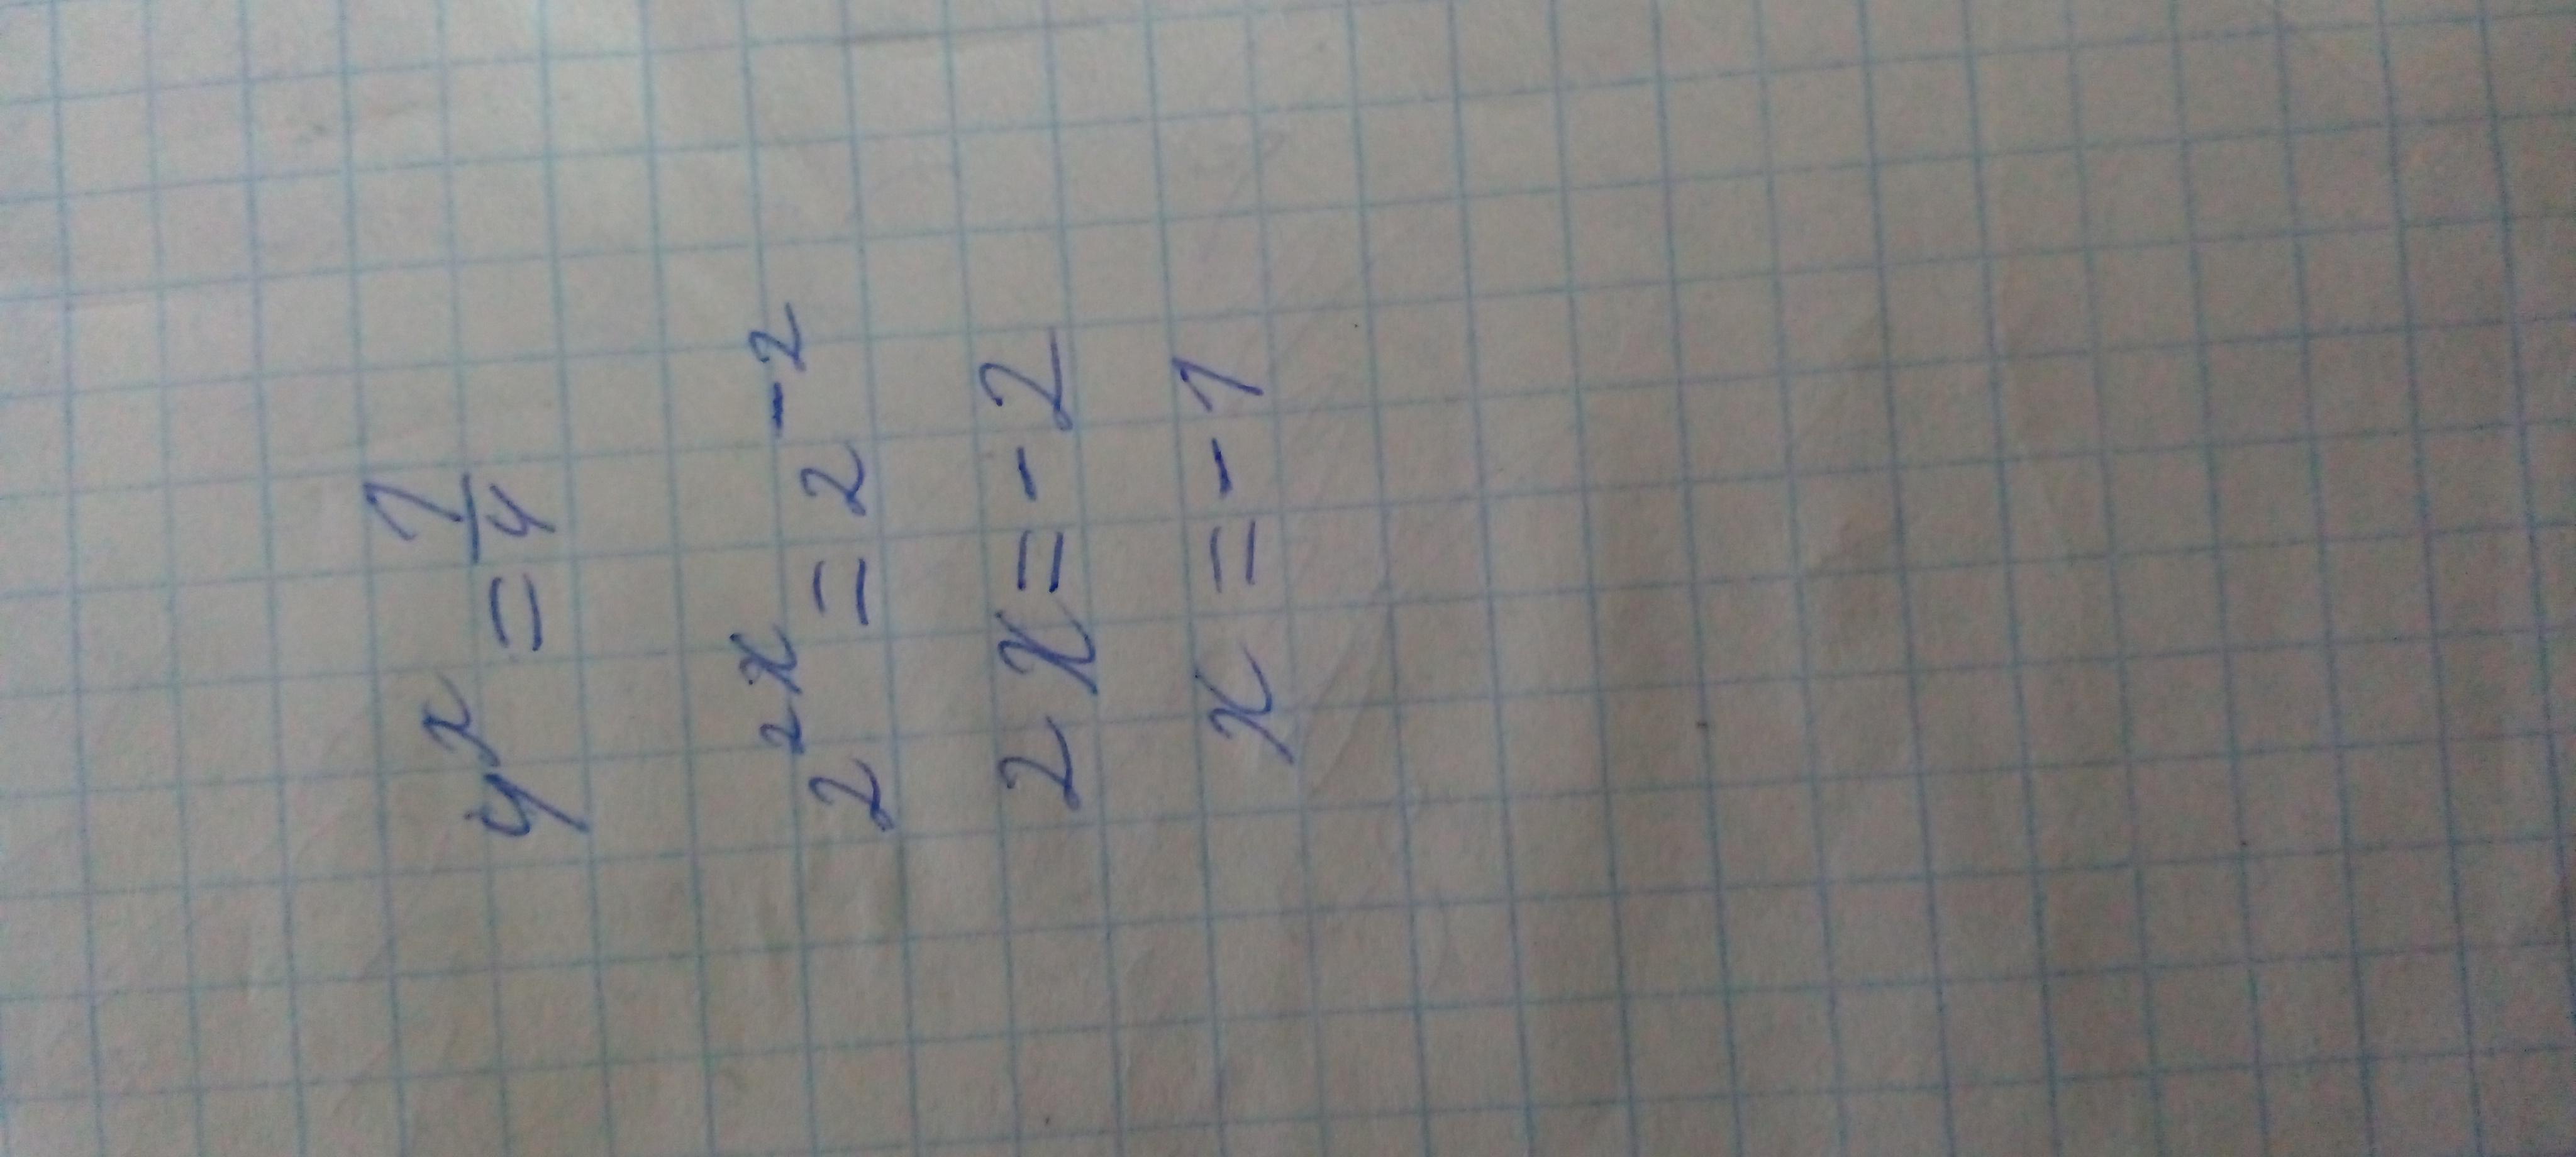 4^x = 1/4
2^2x = 2^-2
2x = -2
x = -1